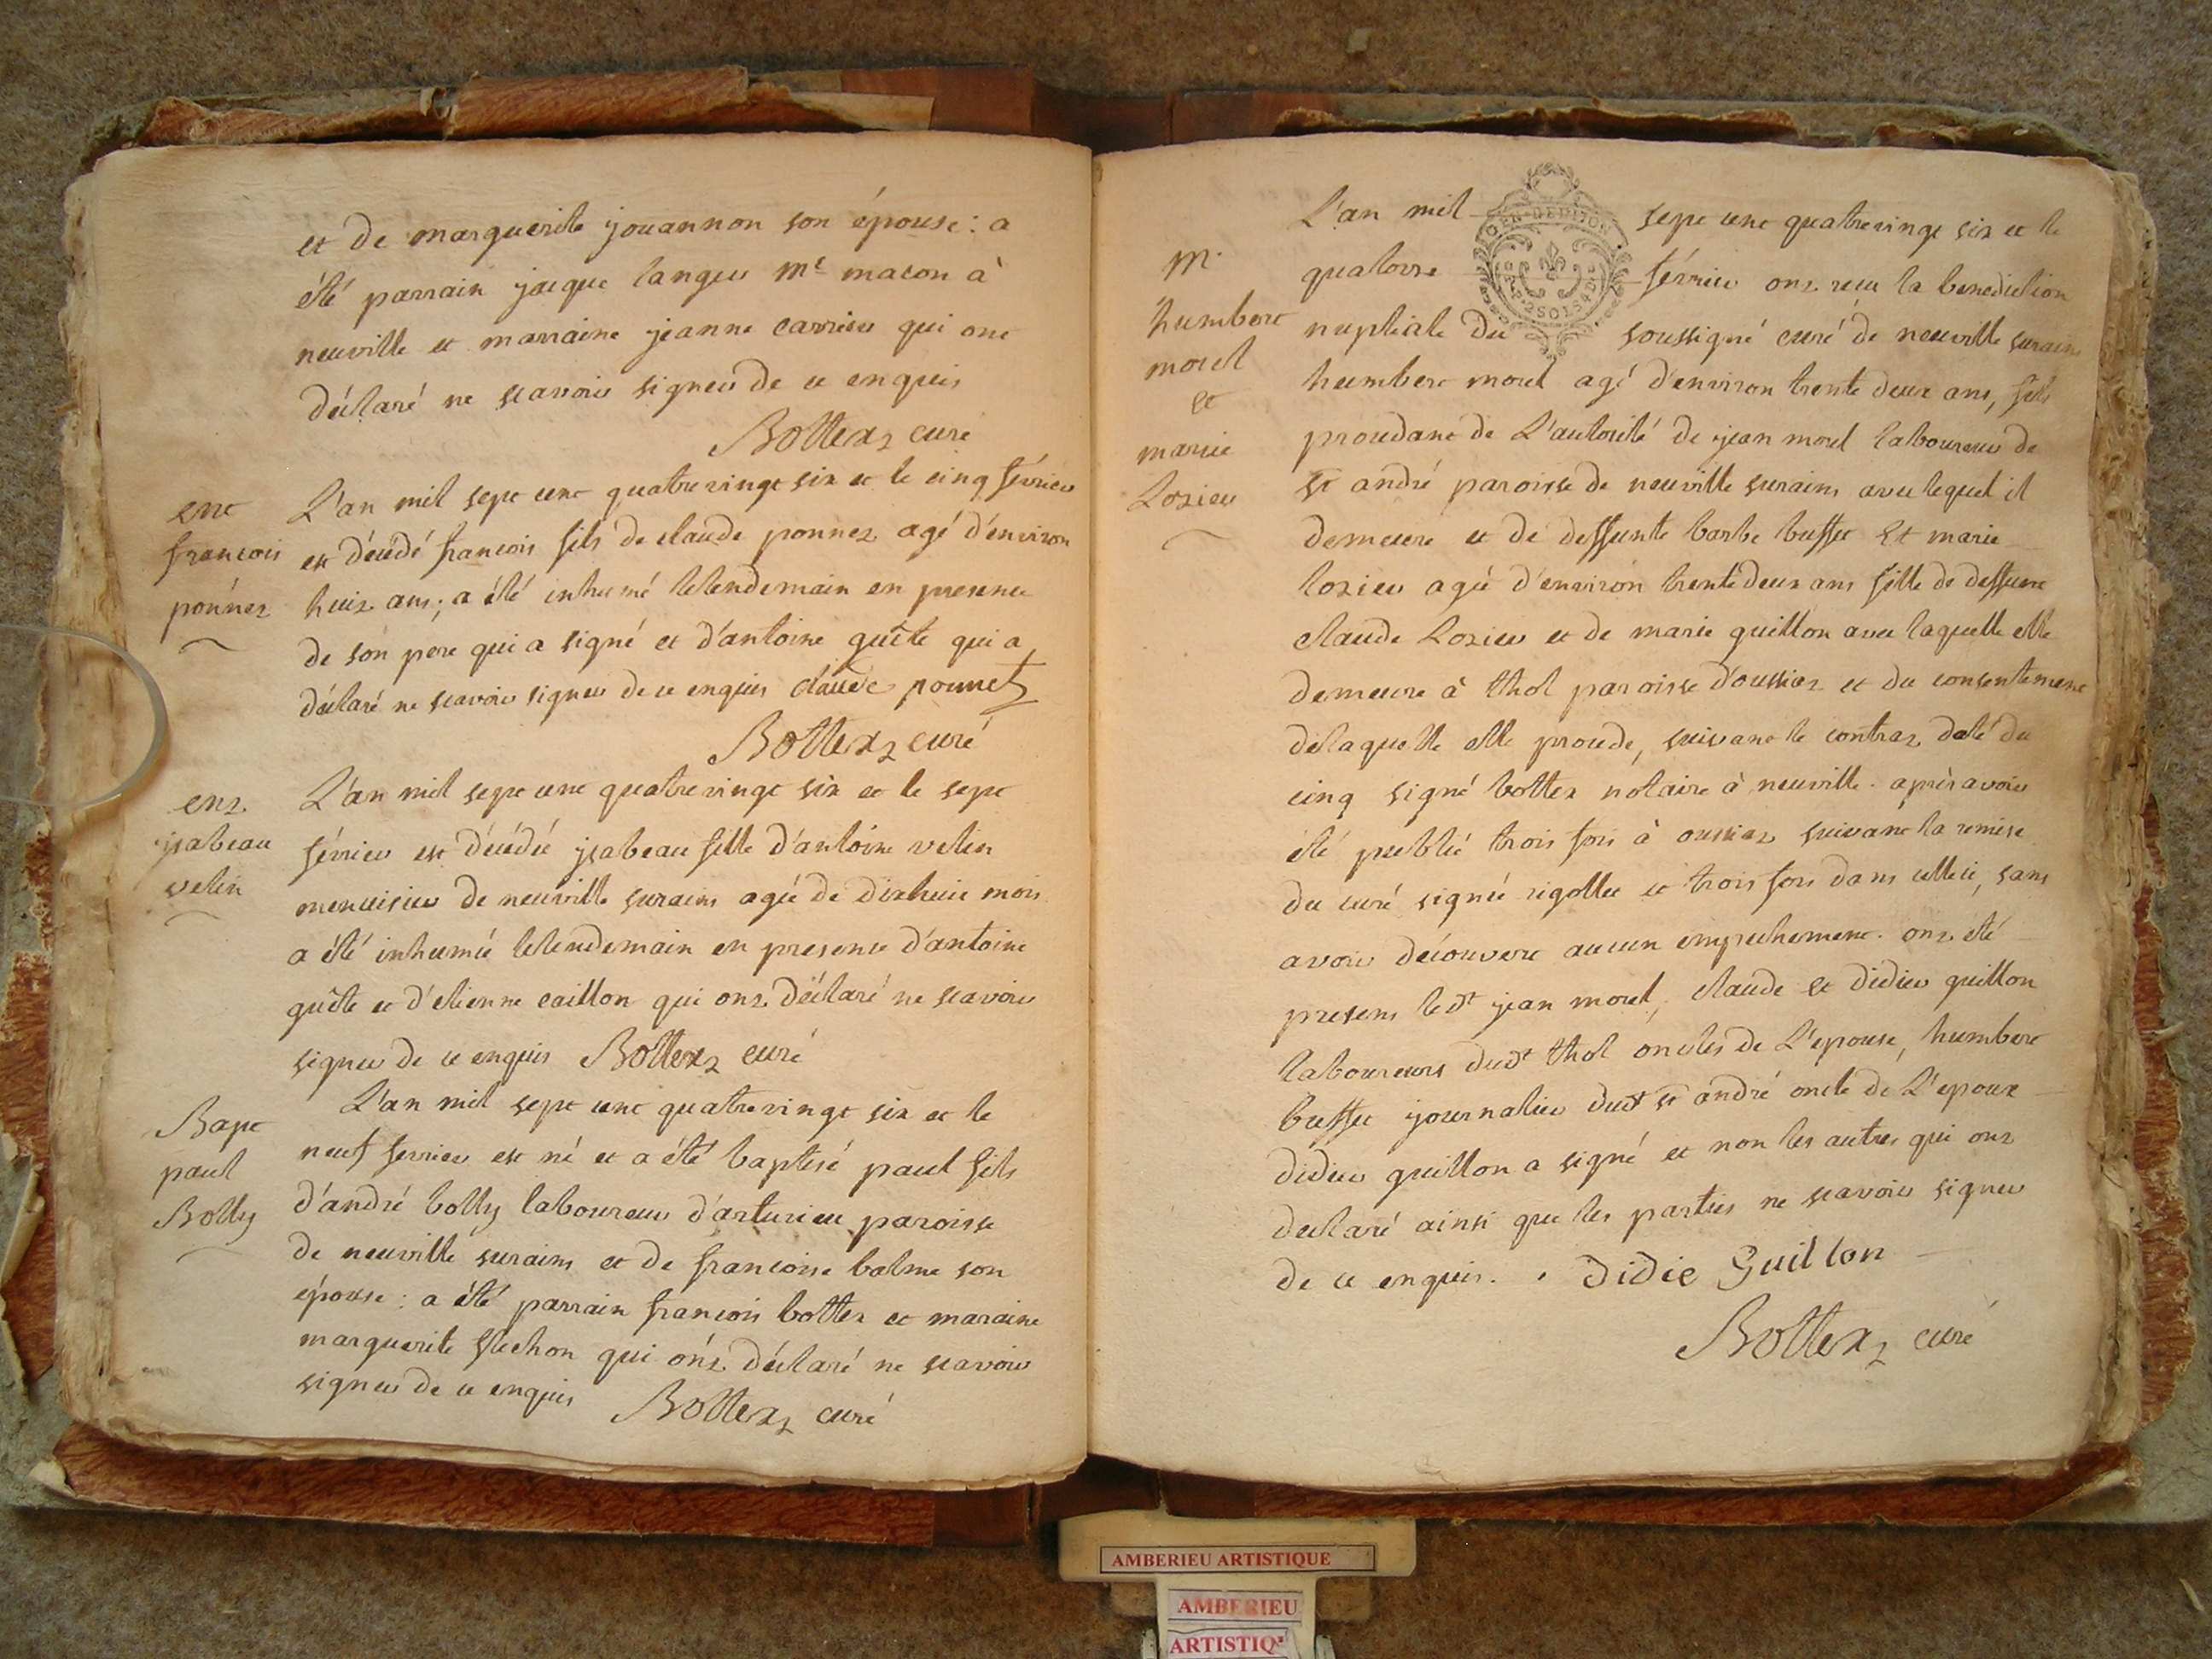 et de marguerite jouannon son épouse : a
été parrain jacque langer me macon à
neuville et marraine jeanne carrier qui ont
déclaré ne scavoir signer de ce enquis
Bottex curé
ent
françois
ponnet
L'an mil sept cent quatrevingt six et le cinq février
est décédé françois fils de claude ponnet agé d'environ
huit ans ; a été inhumé lelendemain en presence
de son pere qui a signé et d'antoine guête qui a
déclaré ne scavoir signer de ce enquis claude ponnet
Bottex curé
ent
ysabeau
velin
L'an mil sept cent quatrevingt six et le sept
février est décédée ysabeau fille d'antoine velin
menuisier de neuville surains agée de dixhuit mois
a été inhumée lelendemain en presence d'antoine
guête et d'etienne caillon qui ont déclaré ne scavoir
signer de ce enquis Bottex curé
Bapt
paul
Bolly
L'an mil sept cent quatrevingt six et le
neuf fevrier est né et a été baptisé paul fils
d'andré bolly laboureur d'arturieu paroisse
de neuville surains et de francoise balme son
épouse : a été parrain francois bottex et maraine
marguerite flechon qui ont déclaré ne scavoir
signer de ce enquis Bottex curé
m.
humbert
morel
et
marie
Lozier
L'an mil sept cent quatrevingt six et le
quatorze février ont recu la benediction
nuptiale du soussigné curé de neuville surains
humbert morel agé d'environ trente deux ans, fils
procedant de L'autorité de jean morel laboureur de
st andré paroisse de neuville surains avec lequel il
demeure et de deffunte barbe buffet Et marie
lozier agée d'environ trente deux ans fille de deffunt
claude Lozier et de marie guillon avec laquelle elle
demeure à thol paroisse d'oussiat et du consentement
delaquelle elle procede, suivant le contrat daté du
cinq signé bottex notaire à neuville. après avoir
été publié trois fois à oussiat suivant la remise
du curé signée rigollet et trois fois dans celleci, sans
avoir découvert aucun empechement. ont été
presens ledt jean morel, claude et didier guillon
laboureurs dudt thol oncles de L'epouse, humbert
buffet journalier dudt st andré oncle de L'epoux
didier guillon a signé et non les autres qui ont
declaré ainsi que les parties ne scavoir signer
de ce enquis. Didie Guillon
Bottex curé
AMBERIEU ARTISTIQUE
AMBERIEU
ARTISTIQ